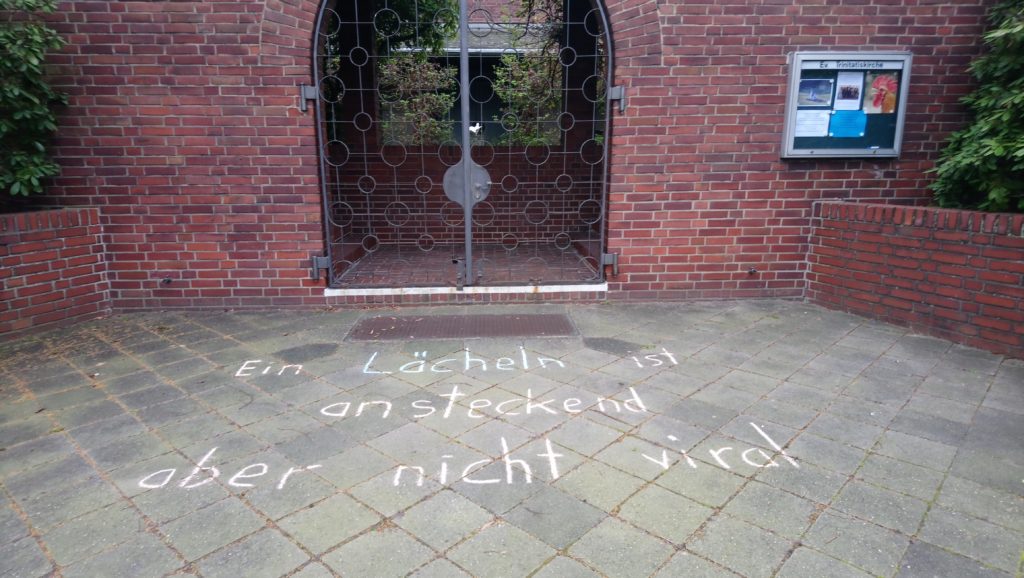 Ev. Trinitatiskirche
Ein Lächeln ist
ansteckend
aber nicht viral